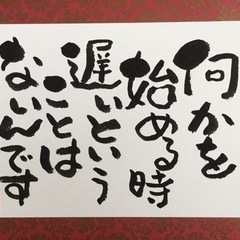 何かを
始める時
遅いという
ことは
ないんです